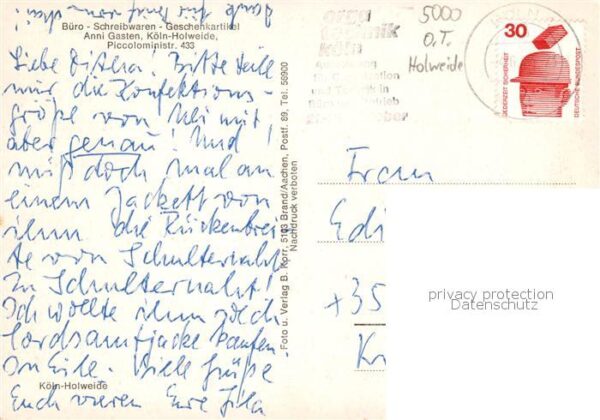 Büro - Schreibwaren - Geschenkartikel
Anni Gasten, Köln-Holweide,
Piccoloministr. 433
Bitte teile
mir die Konfektions-
größe von Uli mit,
aber genau! Und
miß doch mal an
einem Jackett von
ihm die Rückenbrei-
te von Schulternaht
zu Schulternaht!
Ich wollte ihm
Cordsamtjacke kaufen.
In Eile. Viele Grüße
Euch
Köln-Holweide
Foto u. Verlag B. Korr, 5103 Brand/Aachen, Postf. 89, Tel. 56900
Nachdruck verboten
orga
technik
köln
5000
O.T.
Holweide
30
JEDERZEIT SICHERHEIT
DEUTSCHE BUNDESPOST
Frau
Edi
privacy protection
Datenschutz